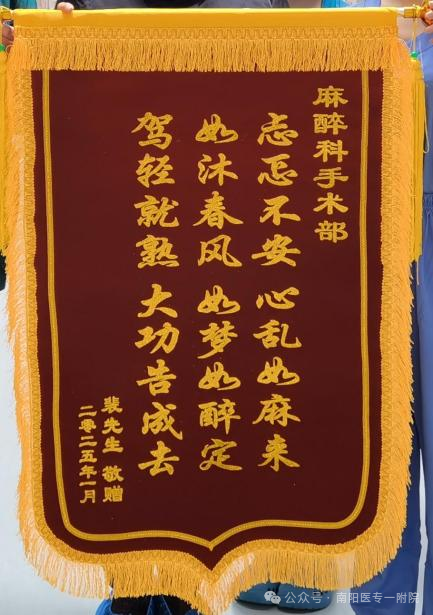 麻醉科手术部
忐忑不安 心乱如麻来
如沐春风 如梦如醉定
驾轻就熟 大功告成去
裴先生 敬赠
二零二五年一月
公众号·南阳医专一附院